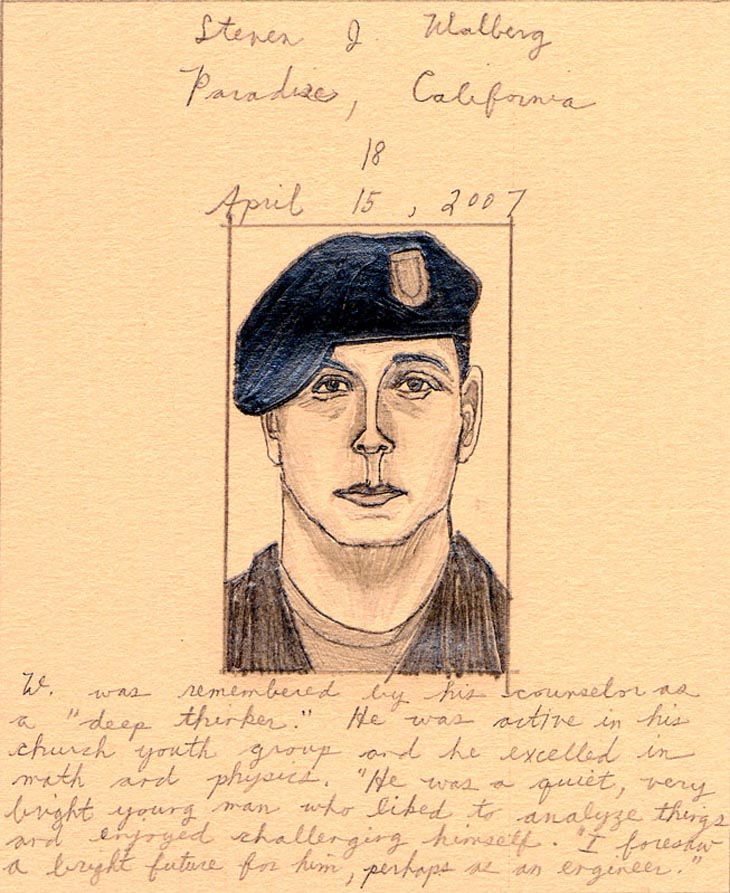 Steven J. Walberg
Paradise, California
18
April 15, 2007
W. was remembered by his counselor as
a "deep thinker." He was active in his
church youth group and he excelled in
math and physics. "He was a quiet, very
bright young man who liked to analyze things
and enjoyed challenging himself. "I foresaw
a bright future for him, perhaps as an engineer."